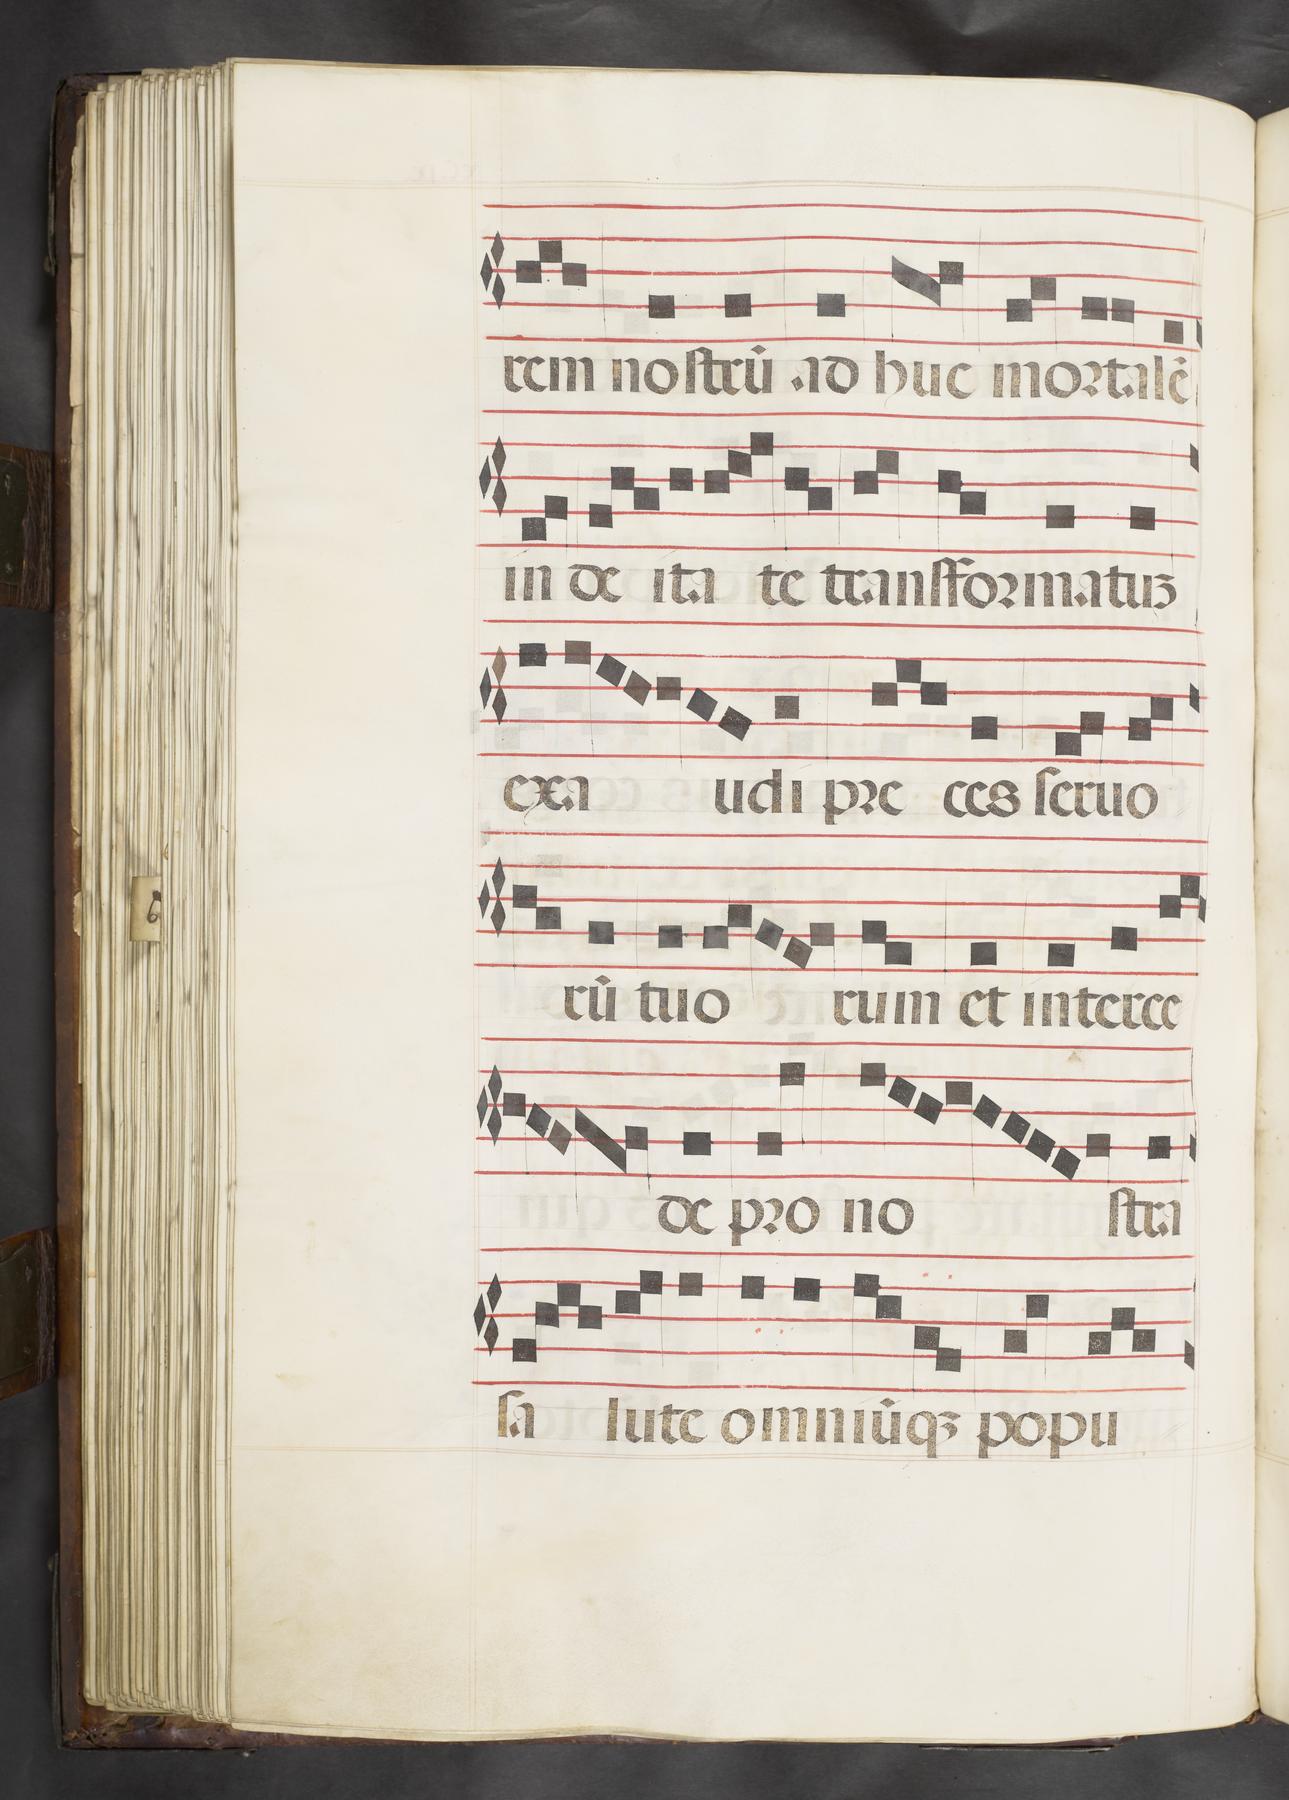 rem nostrū ad huc mortalē
in de ita te transformatus
exa udi pre ces seruo
rū tuo rum et interce
de pro no stra
sa lute omniūqꝫ popu